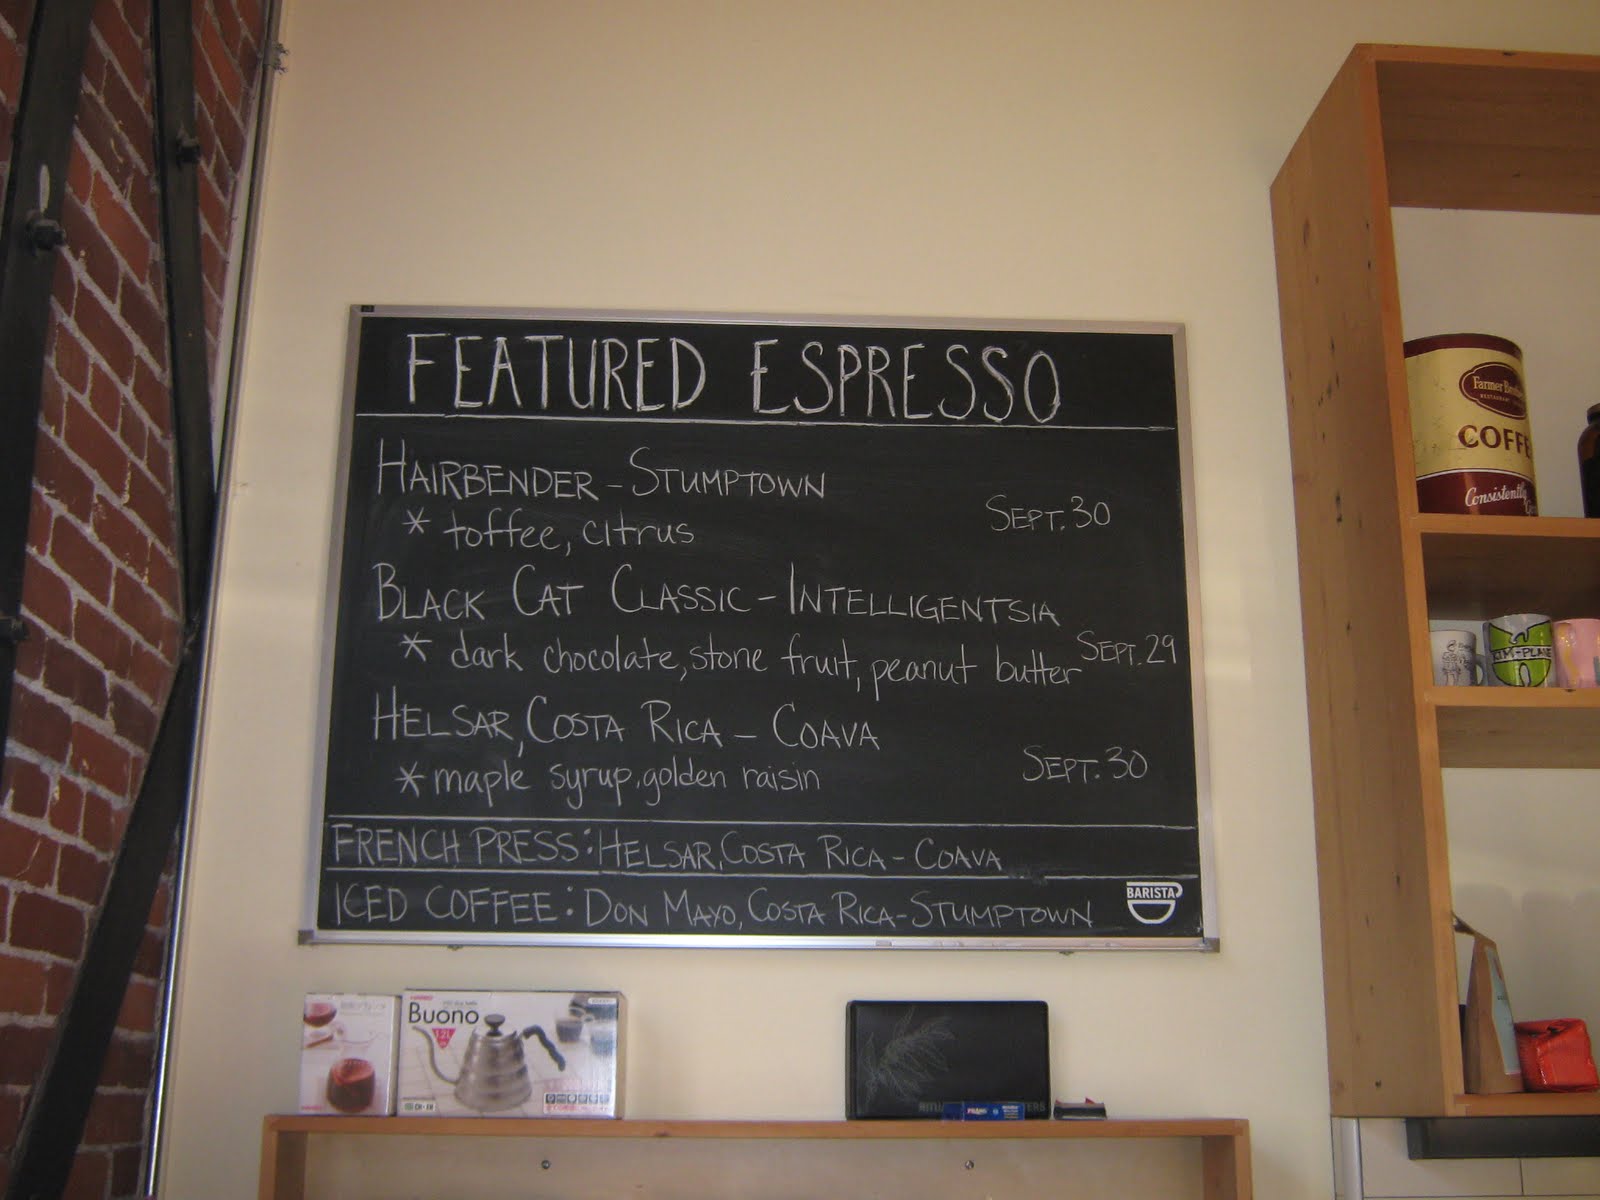 FEATURED ESPRESSO
HAIRBENDER - STUMPTOWN
* toffee, citrus
SEPT. 30
BLACK CAT CLASSIC - INTELLIGENTSIA
* dark chocolate, stone fruit, peanut butter
SEPT. 29
HELSAR, COSTA RICA - COAVA
* maple syrup, golden raisin
SEPT. 30
FRENCH PRESS: HELSAR, COSTA RICA - COAVA
ICED COFFEE: DON MAYO, COSTA RICA - STUMPTOWN
BARISTA
Farmer
COFFE
Consistently
HARIO
Buono
1.2L